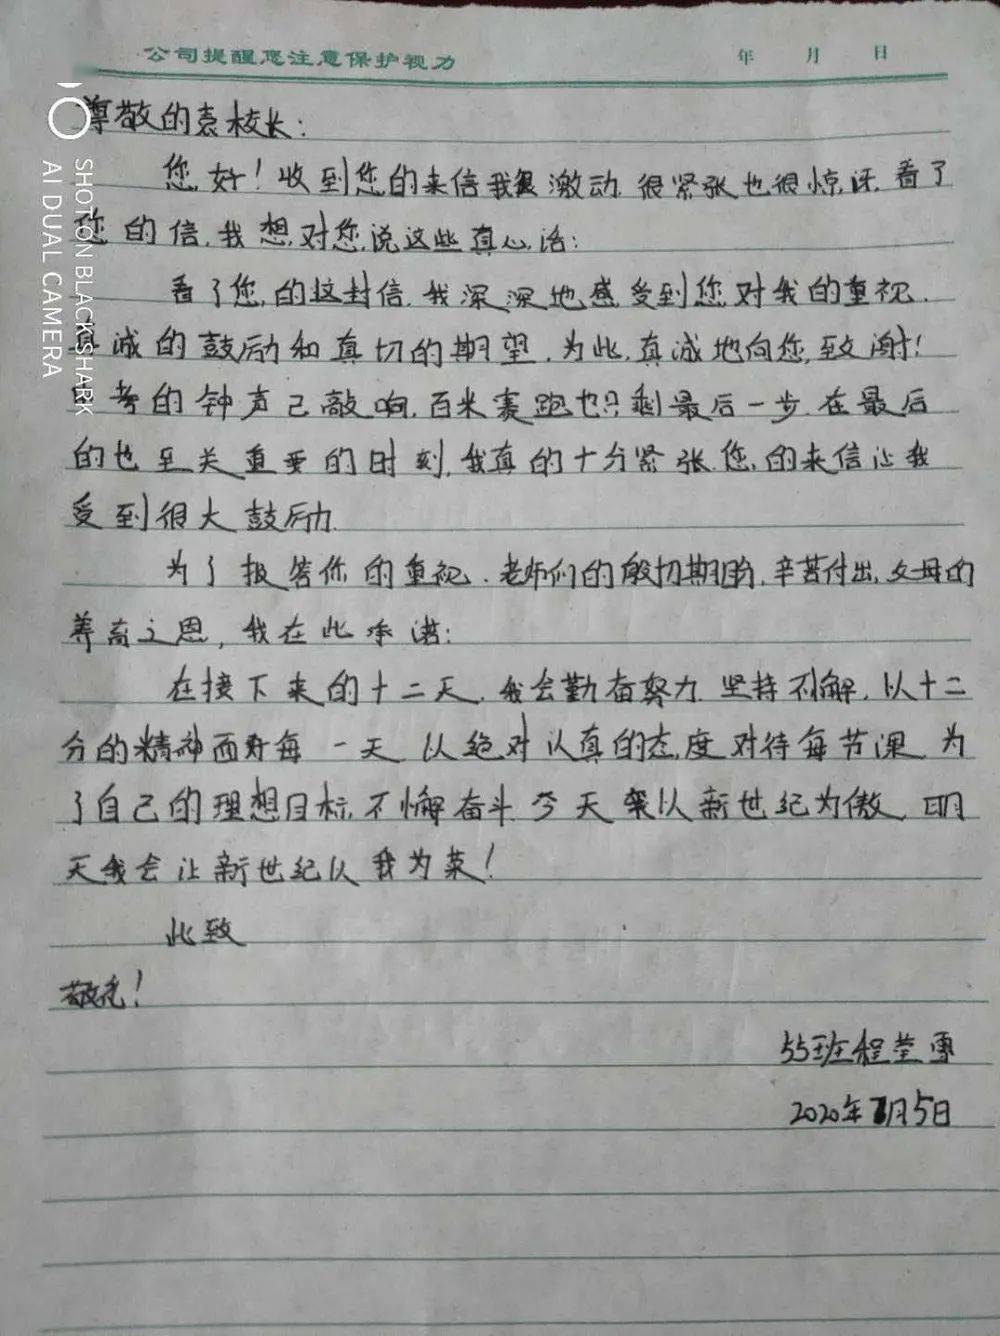 公司提醒您注意保护视力 年 月 日
尊敬的袁校长:
您好!收到您的来信我很激动.很紧张也很惊讶.看了
您的信.我想对您说这些真心话:
看了您的这封信.我深深地感受到您对我的重视.
真诚的鼓励和真切的期望.为此.真诚地向您致谢!
中考的钟声已敲响.百米赛跑也只剩最后一步.在最后
的也至关重要的时刻.我真的十分紧张.您的来信让我
受到很大鼓励.
为了报答你的重视.老师们的殷切期盼.辛苦付出.父母的
养育之恩,我在此承诺:
在接下来的十二天.我会勤奋努力.坚持不懈.以十二
分的精神面对每一天.以绝对认真的态度对待每节课.为
了自己的理想目标.不懈奋斗.今天我以新世纪为傲.明
天我会让新世纪以我为荣!
此致
敬礼!
55班程莹雪
2020年7月5日
SHOT ON BLACK SHARK
AI DUAL CAMERA